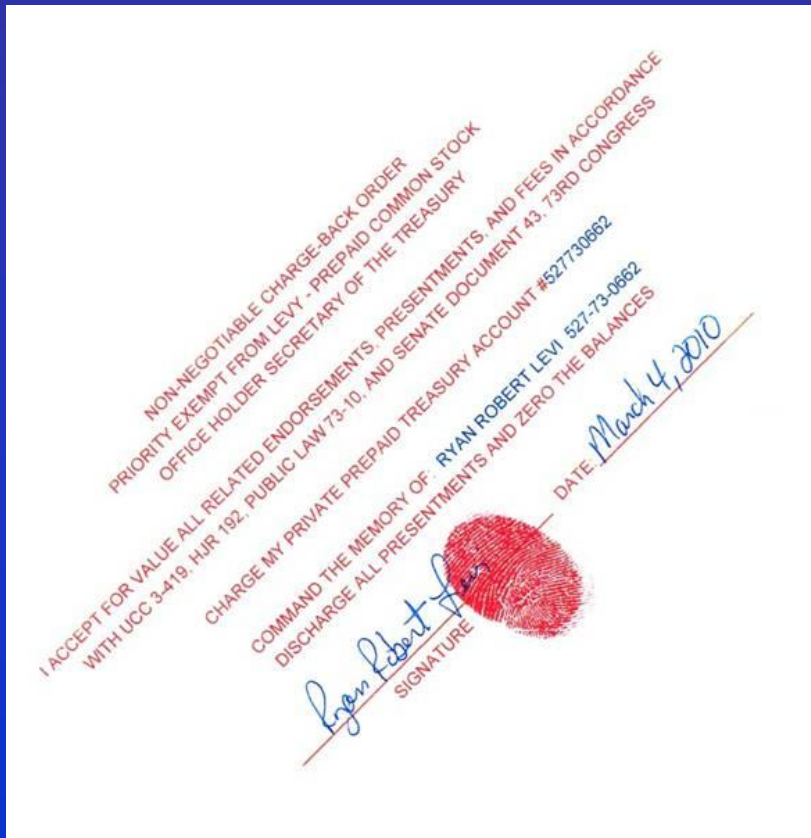 NON-NEGOTIABLE CHARGE-BACK ORDER
PRIORITY EXEMPT FROM LEVY - PREPAID COMMON STOCK
OFFICE HOLDER SECRETARY OF THE TREASURY
I ACCEPT FOR VALUE ALL RELATED ENDORSEMENTS, PRESENTMENTS, AND FEES IN ACCORDANCE
WITH UCC 3-419, HJR 192, PUBLIC LAW 73-10, AND SENATE DOCUMENT 43, 73RD CONGRESS
CHARGE MY PRIVATE PREPAID TREASURY ACCOUNT #527730662
COMMAND THE MEMORY OF: RYAN ROBERT LEVI 527-73-0662
DISCHARGE ALL PRESENTMENTS AND ZERO THE BALANCES
Ryan Robert Levi
SIGNATURE
DATE: March 4, 2010